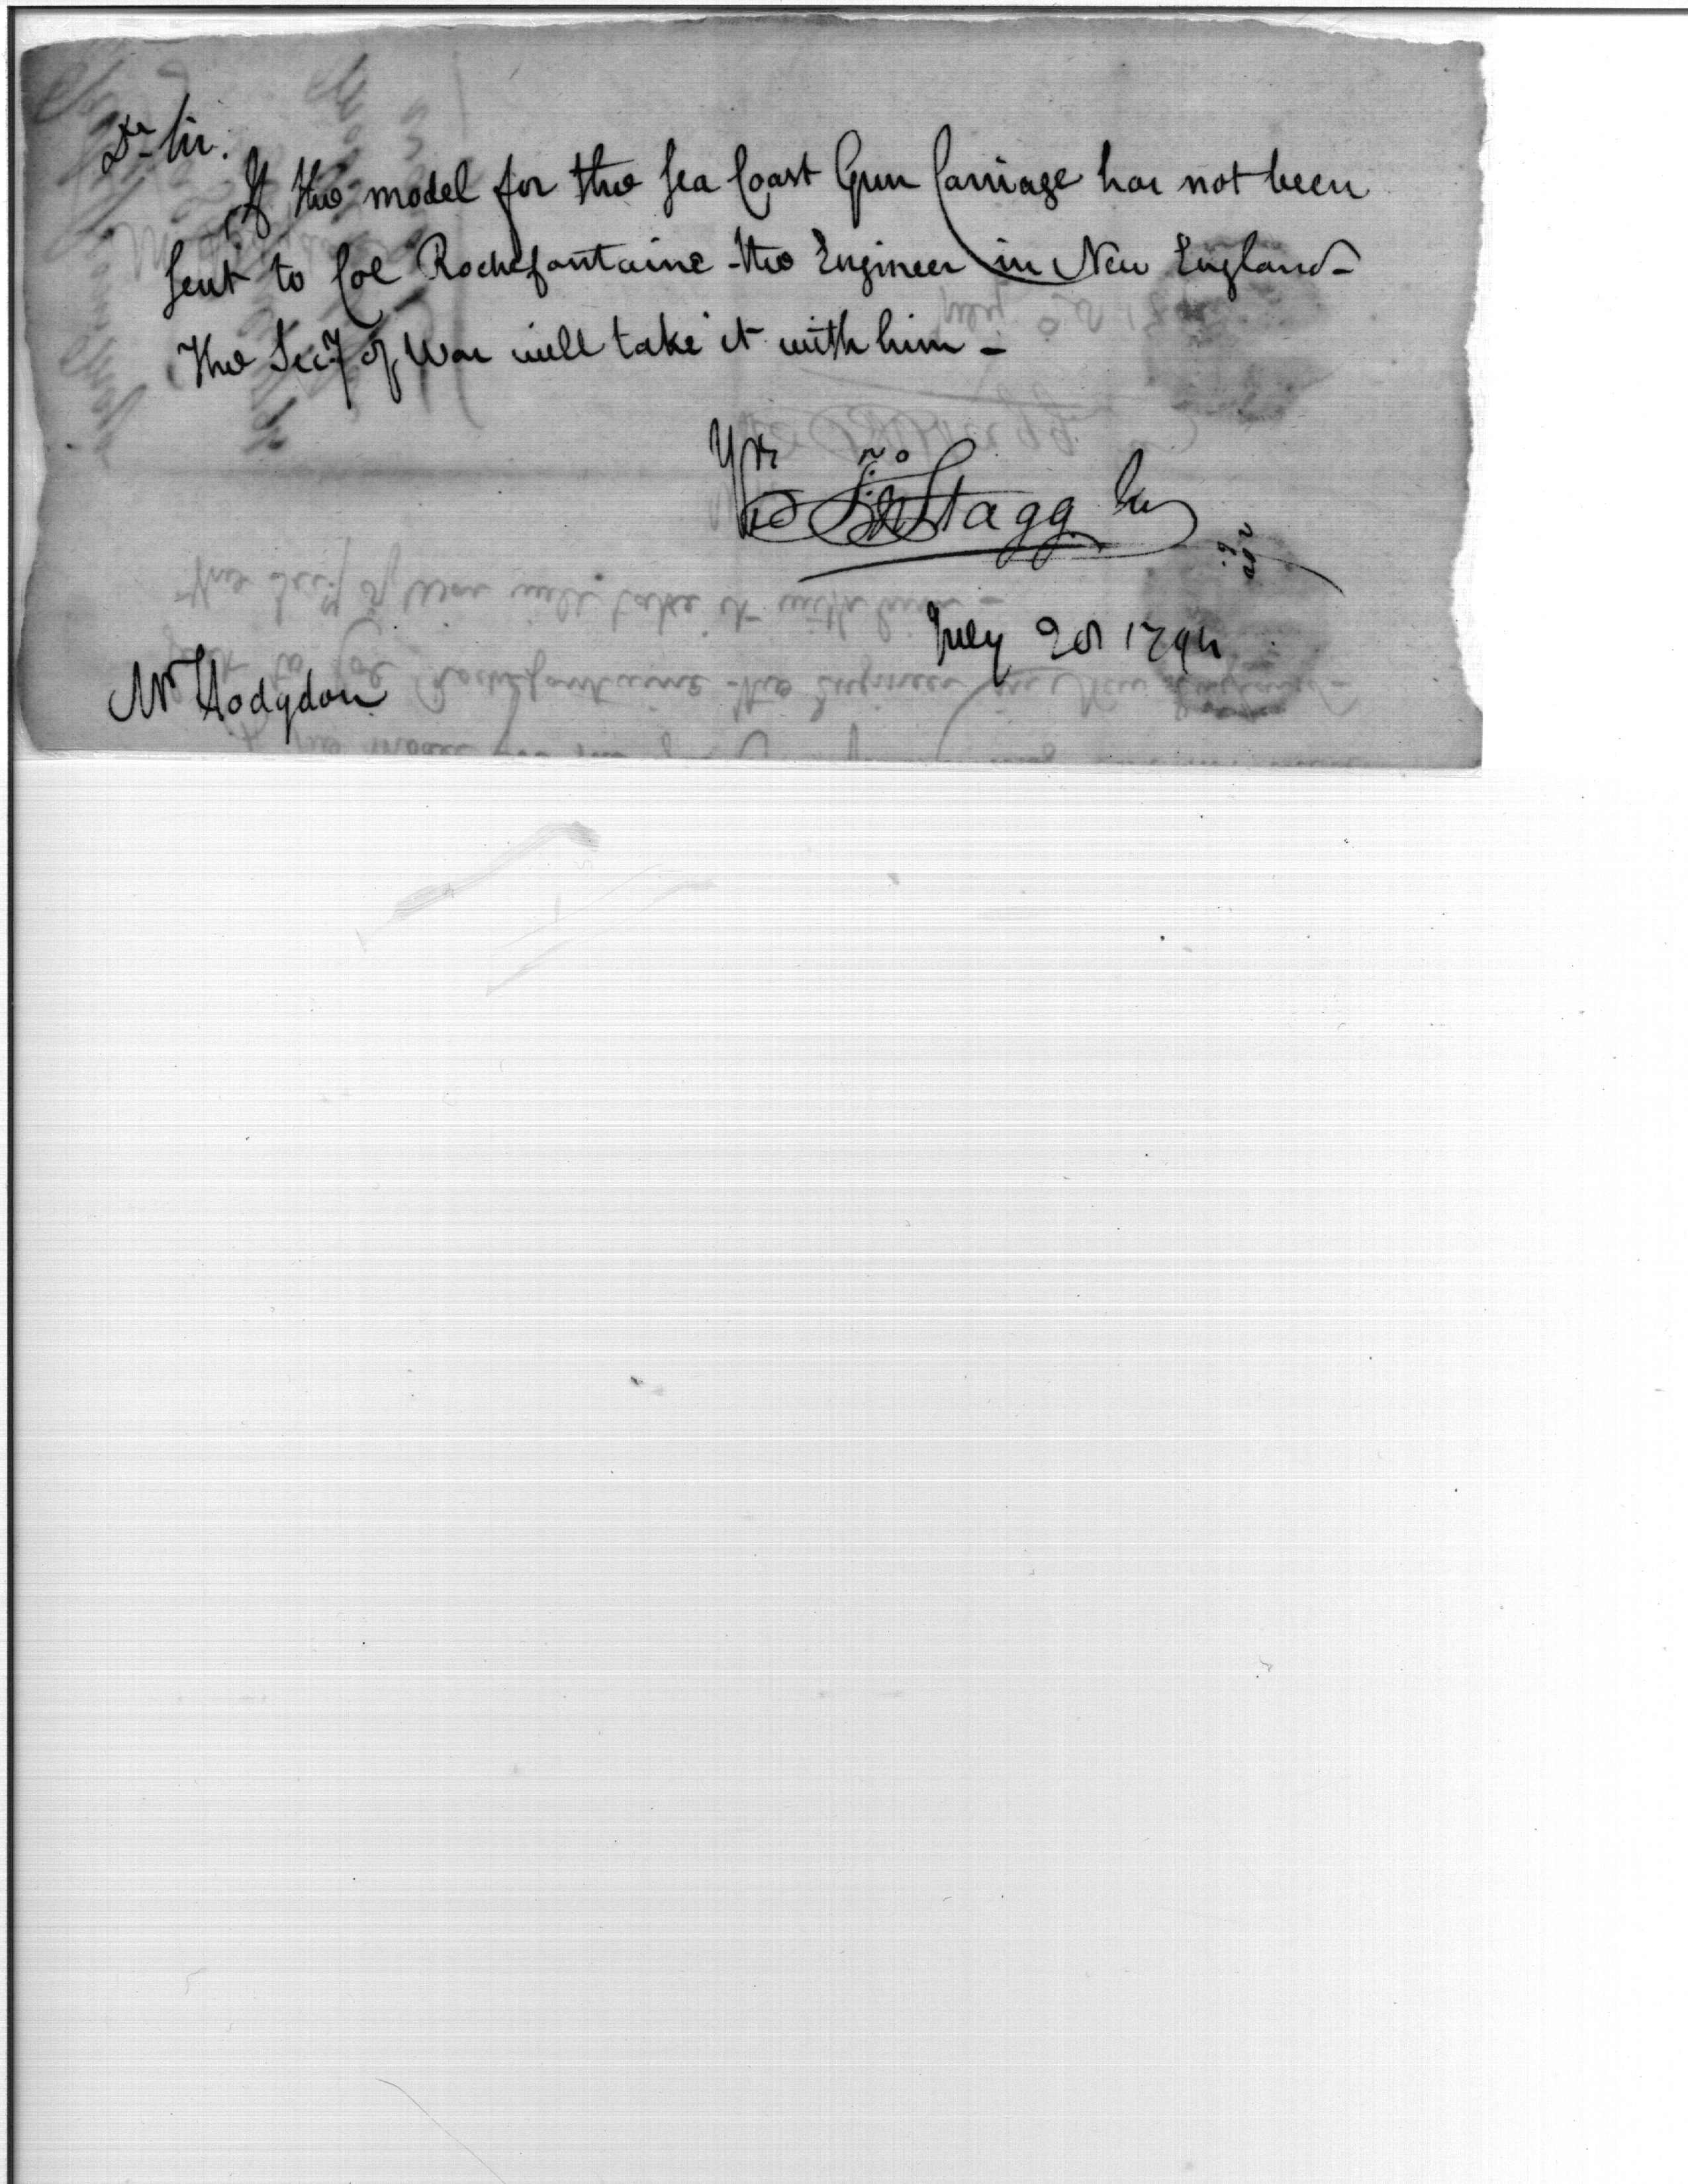 Dr Sir.
If the model for the Sea Coast Gun Carriage has not been
sent to Col Rochefontaine the Engineer in New England–
The Secy of War will take it with him –
Yrs
Jno Stagg Jr
July 20 1794
Mr Hodgdon